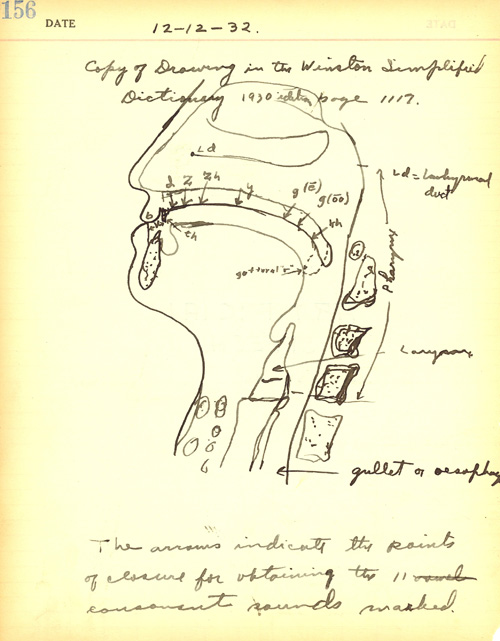 156
DATE
12-12-32.
Copy of Drawing in the Winston Simplified
Dictionary 1930 edition page 1117.
Ld
d Z Zh y g(ē) g(ōō)
kh
b
th
guttural r
Ld = Lachrymal
duct
a
Pharynx
Larynx
gullet or oesophag
The arrows indicate the points
of closure for obtaining the 11 vowel
consonant sounds marked.